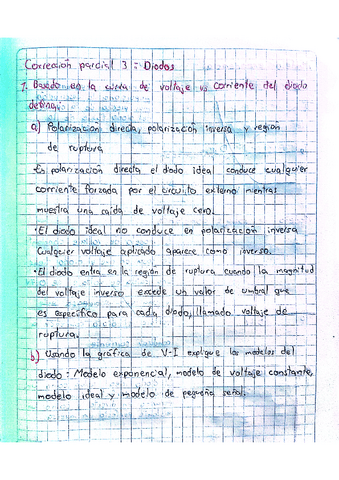 Corrección parcial 3 : Diodos
1. Basado en la curva de voltaje vs corriente del diodo
defina:
a) Polarización directa, polarización inversa y región
de ruptura
·En polarización directa el diodo ideal conduce cualquier
corriente forzada por el circuito externo mientras
muestra una caída de voltaje cero.
·El diodo ideal no conduce en polarización inversa
Cualquier voltaje aplicado aparece como inverso.
·El diodo entra en la región de ruptura cuando la magnitud
del voltaje inverso excede un valor de umbral que
es específico para cada diodo, llamado voltaje de
ruptura.
b) Usando la gráfica de V-I explique los modelos del
diodo : Modelo exponencial, modelo de voltaje constante,
modelo ideal y modelo de pequeña señal.